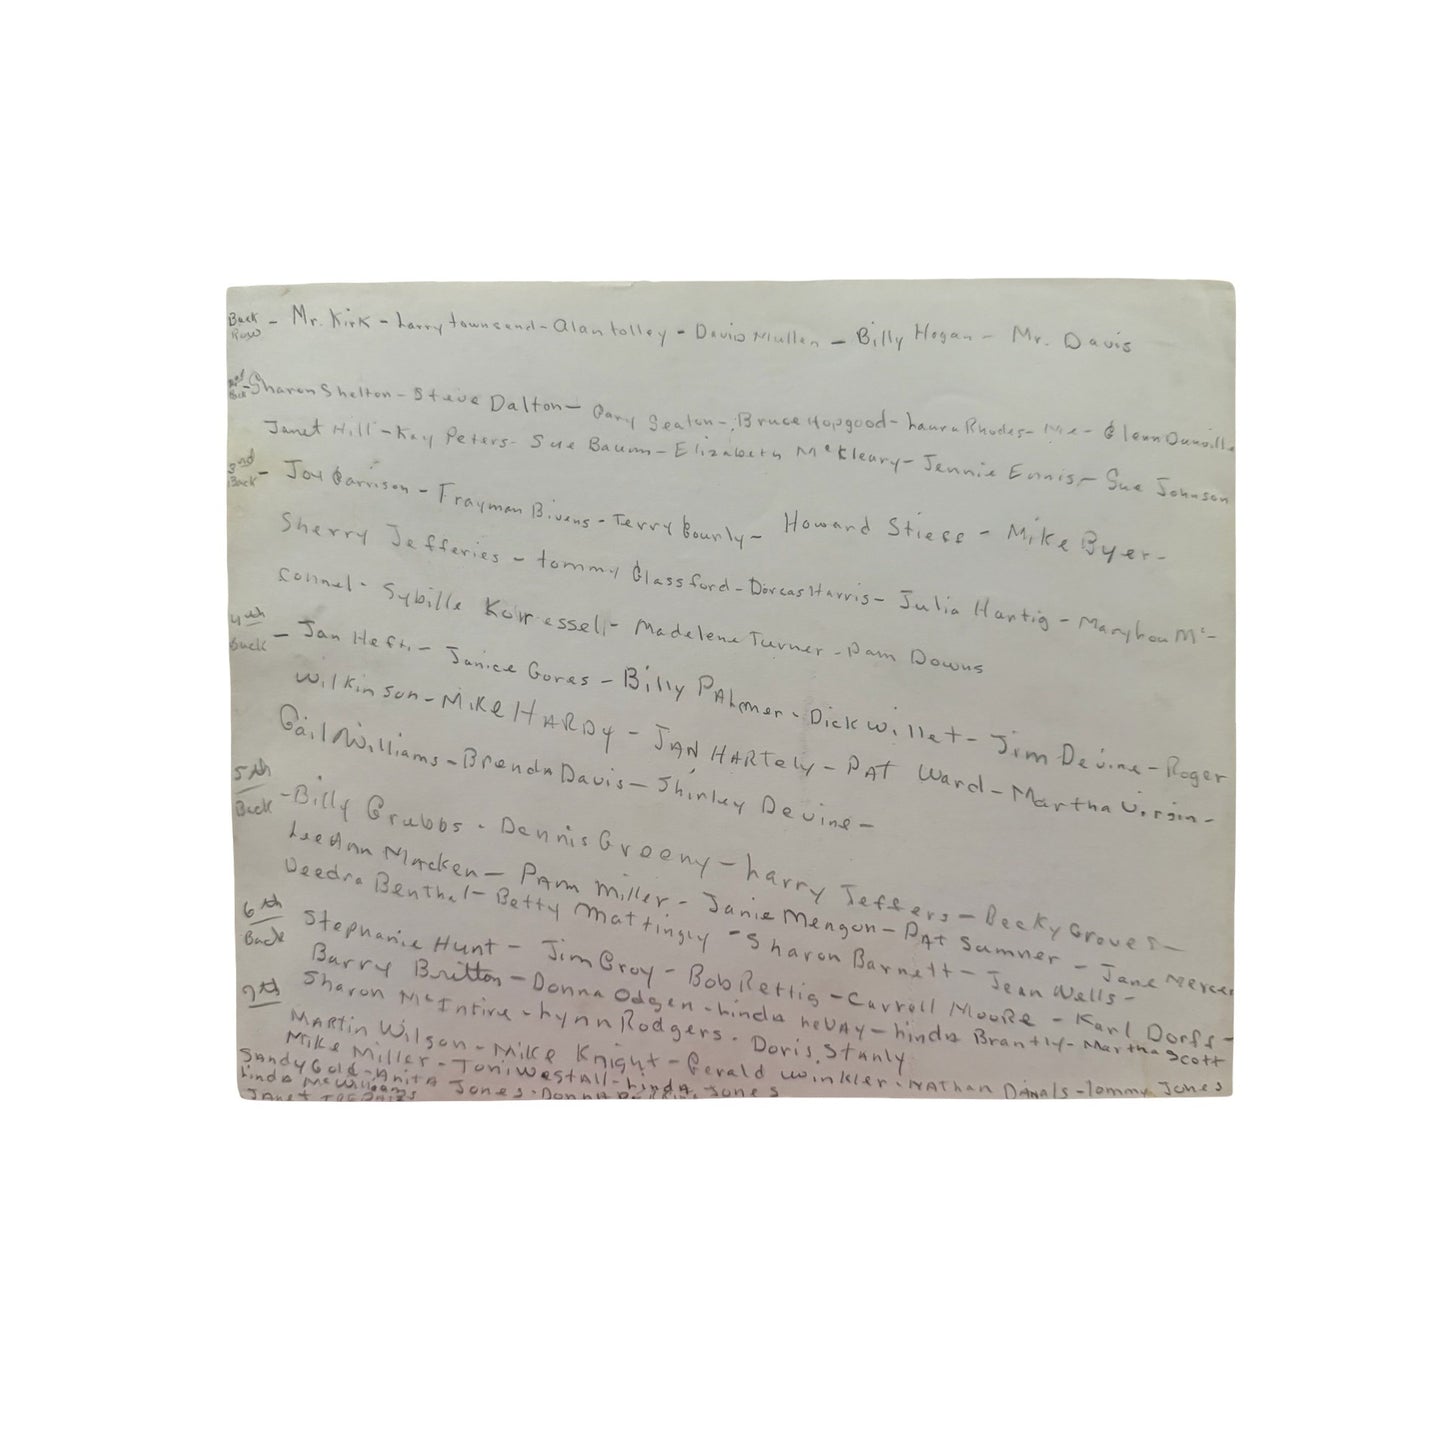 Back Row - Mr. Kirk - Larry Townsend - Alan Tolley - David Mullen - Billy Hogan - Mr. Davis
Back - Sharon Shelton - Steve Dalton - Gary Seaton - Bruce Hopgood - Laura Rhodes - Me - Glenn Dunville
Janet Hill - Kay Peters - Sue Baum - Elizabeth McKleary - Jennie Ennis - Sue Johnson
3nd Back - Joy Garrison - Frayman Bivens - Terry Gourly - Howard Stieff - Mike Byer -
Sherry Jefferies - Tommy Glassford - Dorcas Harris - Julia Hartig - Marylou Mc-
Connel - Sybille - Madelene Turner - Pam Downs
4th Back - Jan Hefti - Janice Gores - Billy PAlmer - Dick Willet - Jim Devine - Roger
Wilkinson - Mike HARDy - JAN HARTely - PAT Ward - Martha Virgin -
Gail Williams - Brenda Davis - Shirley Devine -
5th Back - Billy Grubbs - Dennis Greeny - Larry Jeffers - Becky Groves -
LeeAnn MAcken - PAm Miller - Janie Mengon - PAt Sumner - Jane Mercer
Deedra Benthal - Betty Mattingly - Sharon Barnett - Jean Wells -
6th Back Stephanie Hunt - Jim Groy - Bob Rettig - Carroll MooRe - Karl Dorfs -
Barry Britton - Donna Odgen - Linda LeVAy - Linda Brantly - Martha Scott
Sharon McIntire - Lynn Rodgers - Doris Stanly
7th MARTin Wilson - Mike Knight - Gerald Winkler - NAthan DANAls - Tommy Jones
Mike Miller - Toni WestAll - LindA Jones
SANdy Gold - AnitA Jones - DonnA
Linda McWilliams
JANeT